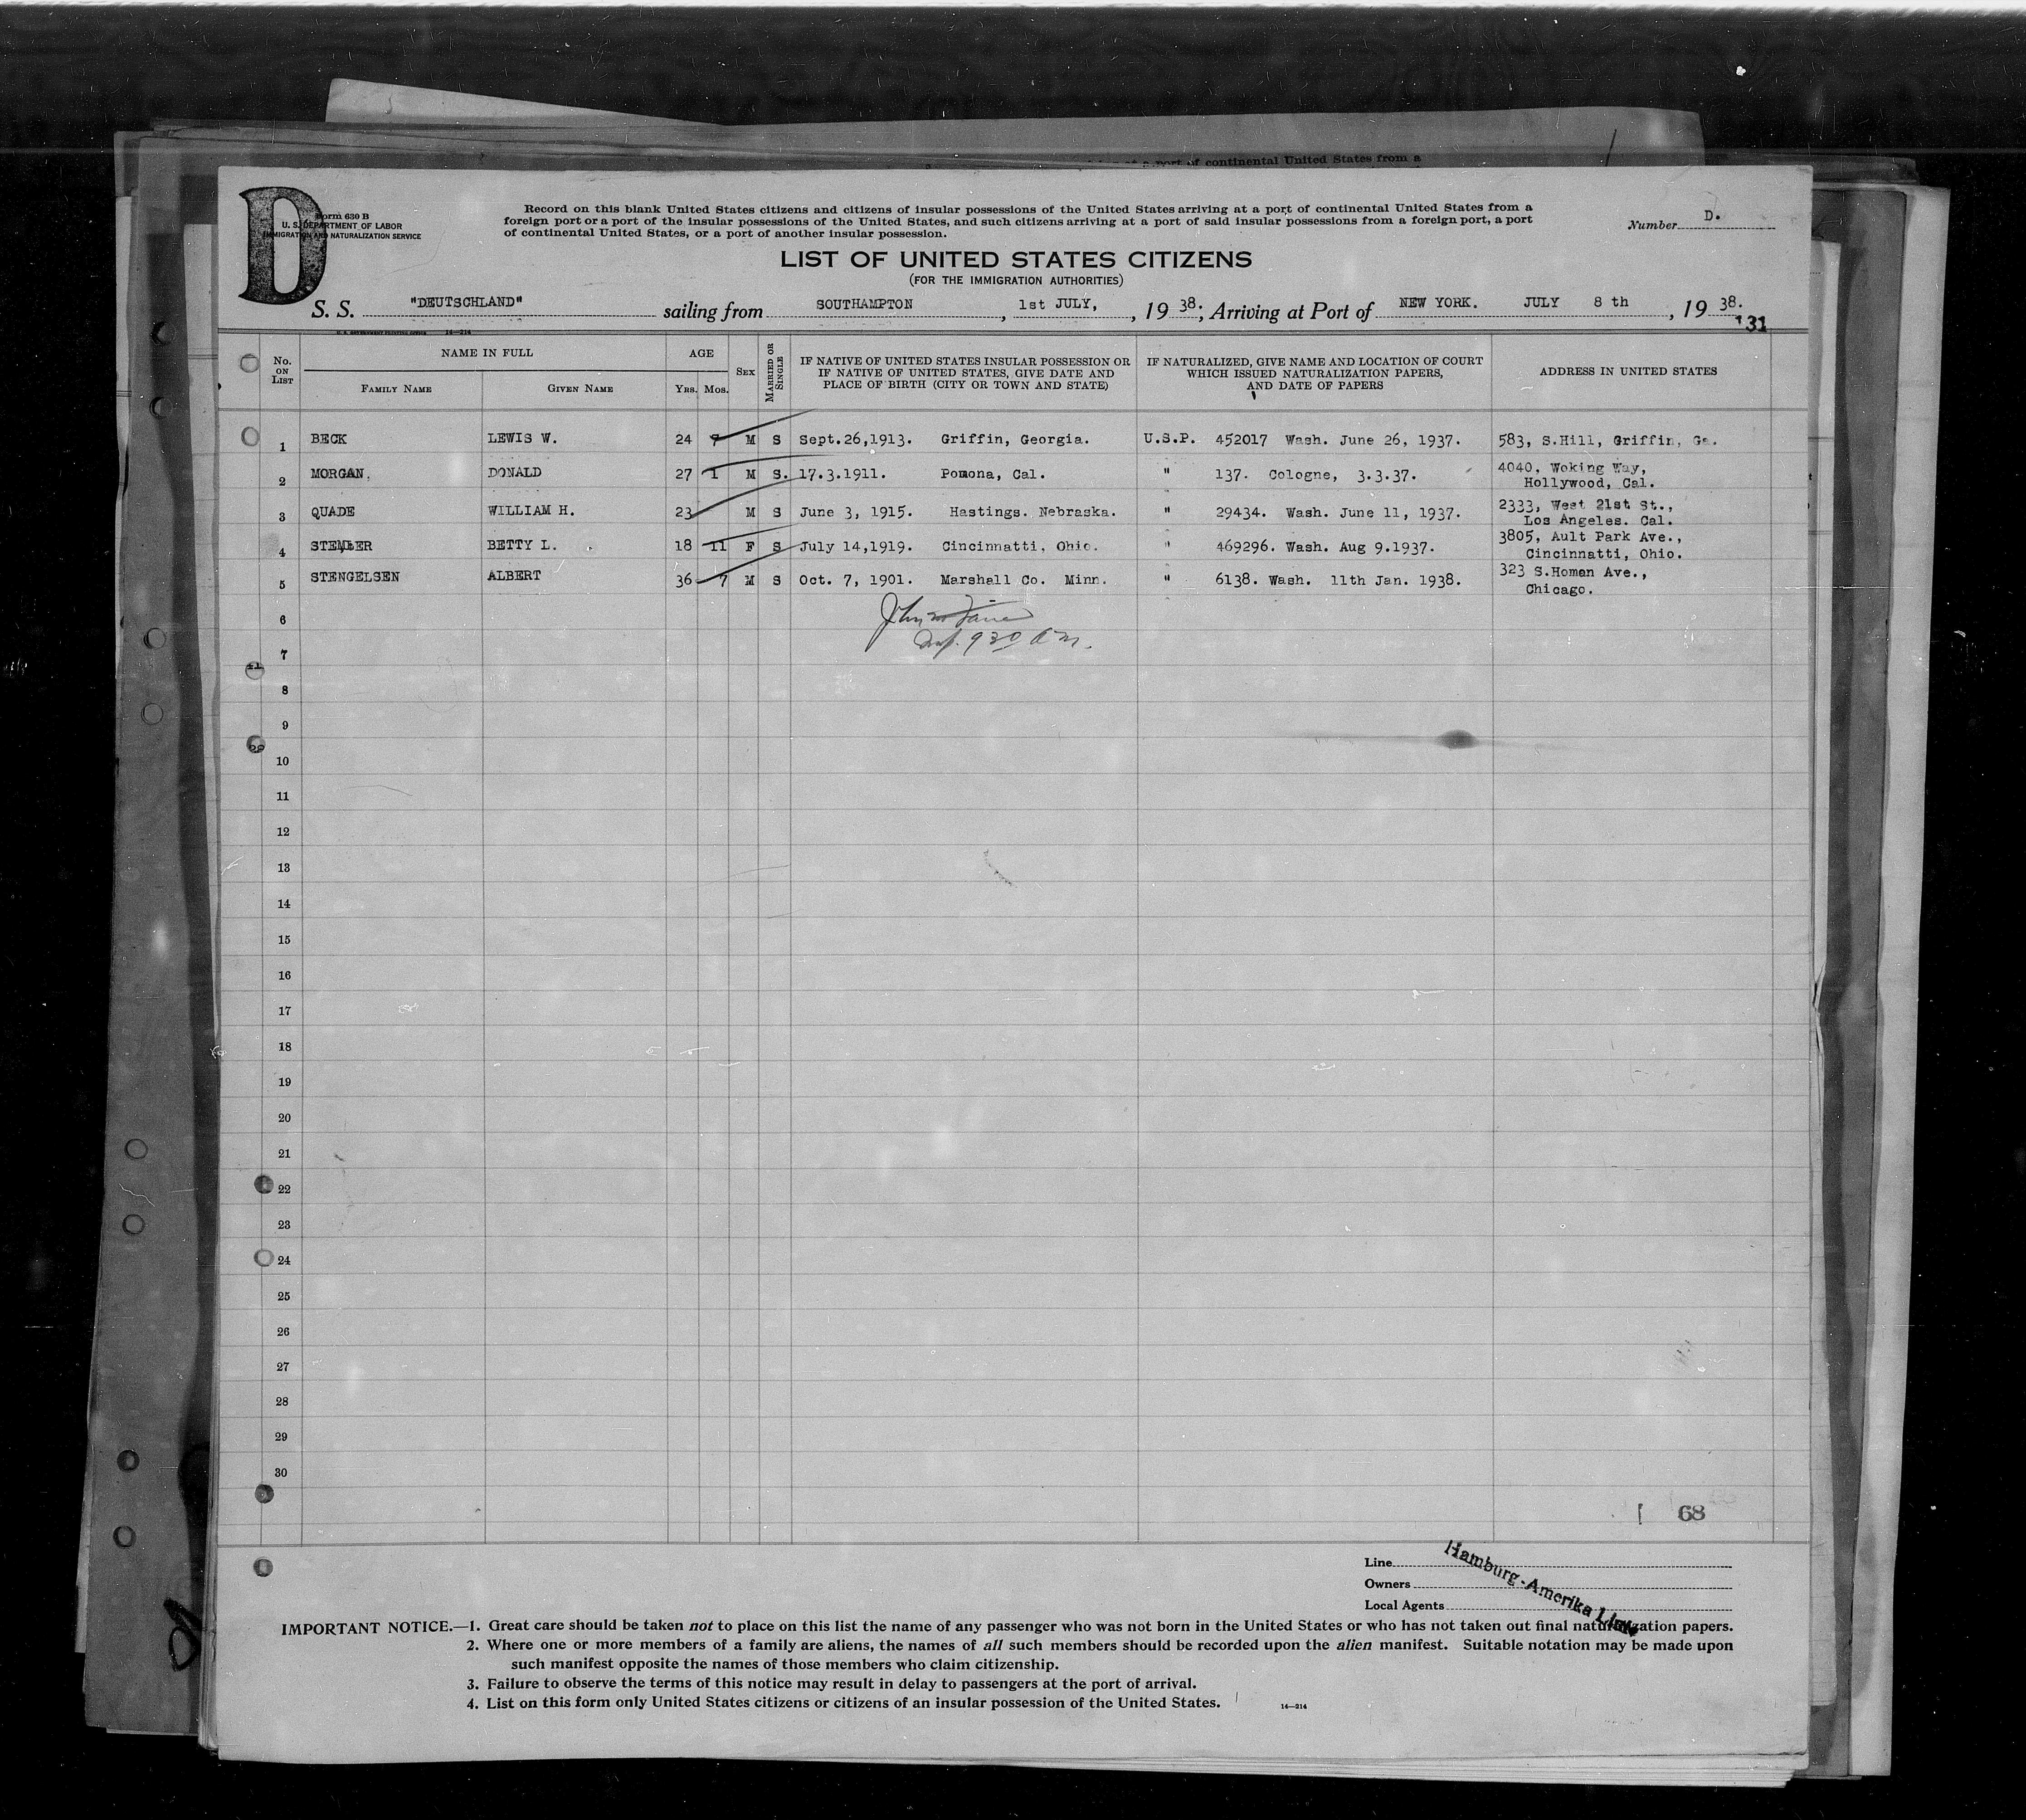 at a port of continental United States from a
D
Form 630 B
U. S. DEPARTMENT OF LABOR
IMMIGRATION AND NATURALIZATION SERVICE
Record on this blank United States citizens and citizens of insular possessions of the United States arriving at a port of continental United States from a
foreign port or a port of the insular possessions of the United States, and such citizens arriving at a port of said insular possessions from a foreign port, a port
of continental United States, or a port of another insular possession.
Number D.
LIST OF UNITED STATES CITIZENS
(FOR THE IMMIGRATION AUTHORITIES)
S. S. "DEUTSCHLAND" sailing from SOUTHAMPTON, 1st JULY, , 19 38; Arriving at Port of NEW YORK. JULY 8 th , 19 38.
U. S. GOVERNMENT PRINTING OFFICE 14—214
131
No. ON LIST
NAME IN FULL
FAMILY NAME GIVEN NAME
AGE
YRS. MOS.
SEX
MARRIED OR SINGLE
IF NATIVE OF UNITED STATES INSULAR POSSESSION OR
IF NATIVE OF UNITED STATES, GIVE DATE AND
PLACE OF BIRTH (CITY OR TOWN AND STATE)
IF NATURALIZED, GIVE NAME AND LOCATION OF COURT
WHICH ISSUED NATURALIZATION PAPERS,
AND DATE OF PAPERS
ADDRESS IN UNITED STATES
1 BECK LEWIS W. 24 7 M S Sept.26,1913. Griffin, Georgia. U.S.P. 452017 Wash. June 26, 1937. 583, S.Hill, Griffin, Ga.
2 MORGAN. DONALD 27 1 M S. 17.3.1911. Pomona, Cal. " 137. Cologne, 3.3.37. 4040, Woking Way,
Hollywood, Cal.
3 QUADE WILLIAM H. 23 M S June 3, 1915. Hastings. Nebraska. " 29434. Wash. June 11, 1937. 2333, West 21st St.,
Los Angeles. Cal.
4 STEMLER BETTY L. 18 11 F S July 14,1919. Cincinnatti, Ohio. " 469296. Wash. Aug 9.1937. 3805, Ault Park Ave.,
Cincinnatti, Ohio.
5 STENGELSEN ALBERT 36 7 M S Oct. 7, 1901. Marshall Co. Minn. " 6138. Wash. 11th Jan. 1938. 323 S.Homan Ave.,
Chicago.
6
Insp. 930 A M.
7
8
9
10
11
12
13
14
15
16
17
18
19
20
21
22
23
24
25
26
27
28
29
30
68
Line
Owners
Local Agents
Hamburg-Amerika Linie
IMPORTANT NOTICE.—1. Great care should be taken not to place on this list the name of any passenger who was not born in the United States or who has not taken out final naturalization papers.
2. Where one or more members of a family are aliens, the names of all such members should be recorded upon the alien manifest. Suitable notation may be made upon
such manifest opposite the names of those members who claim citizenship.
3. Failure to observe the terms of this notice may result in delay to passengers at the port of arrival.
4. List on this form only United States citizens or citizens of an insular possession of the United States.
14—214